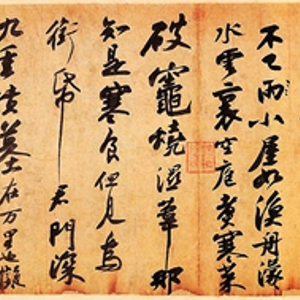 不已雨小屋如漁舟濛
水雲裏空庖煮寒菜
破竈燒濕葦那
知是寒食但見烏
銜帋君門深
九重墳墓在万里也擬